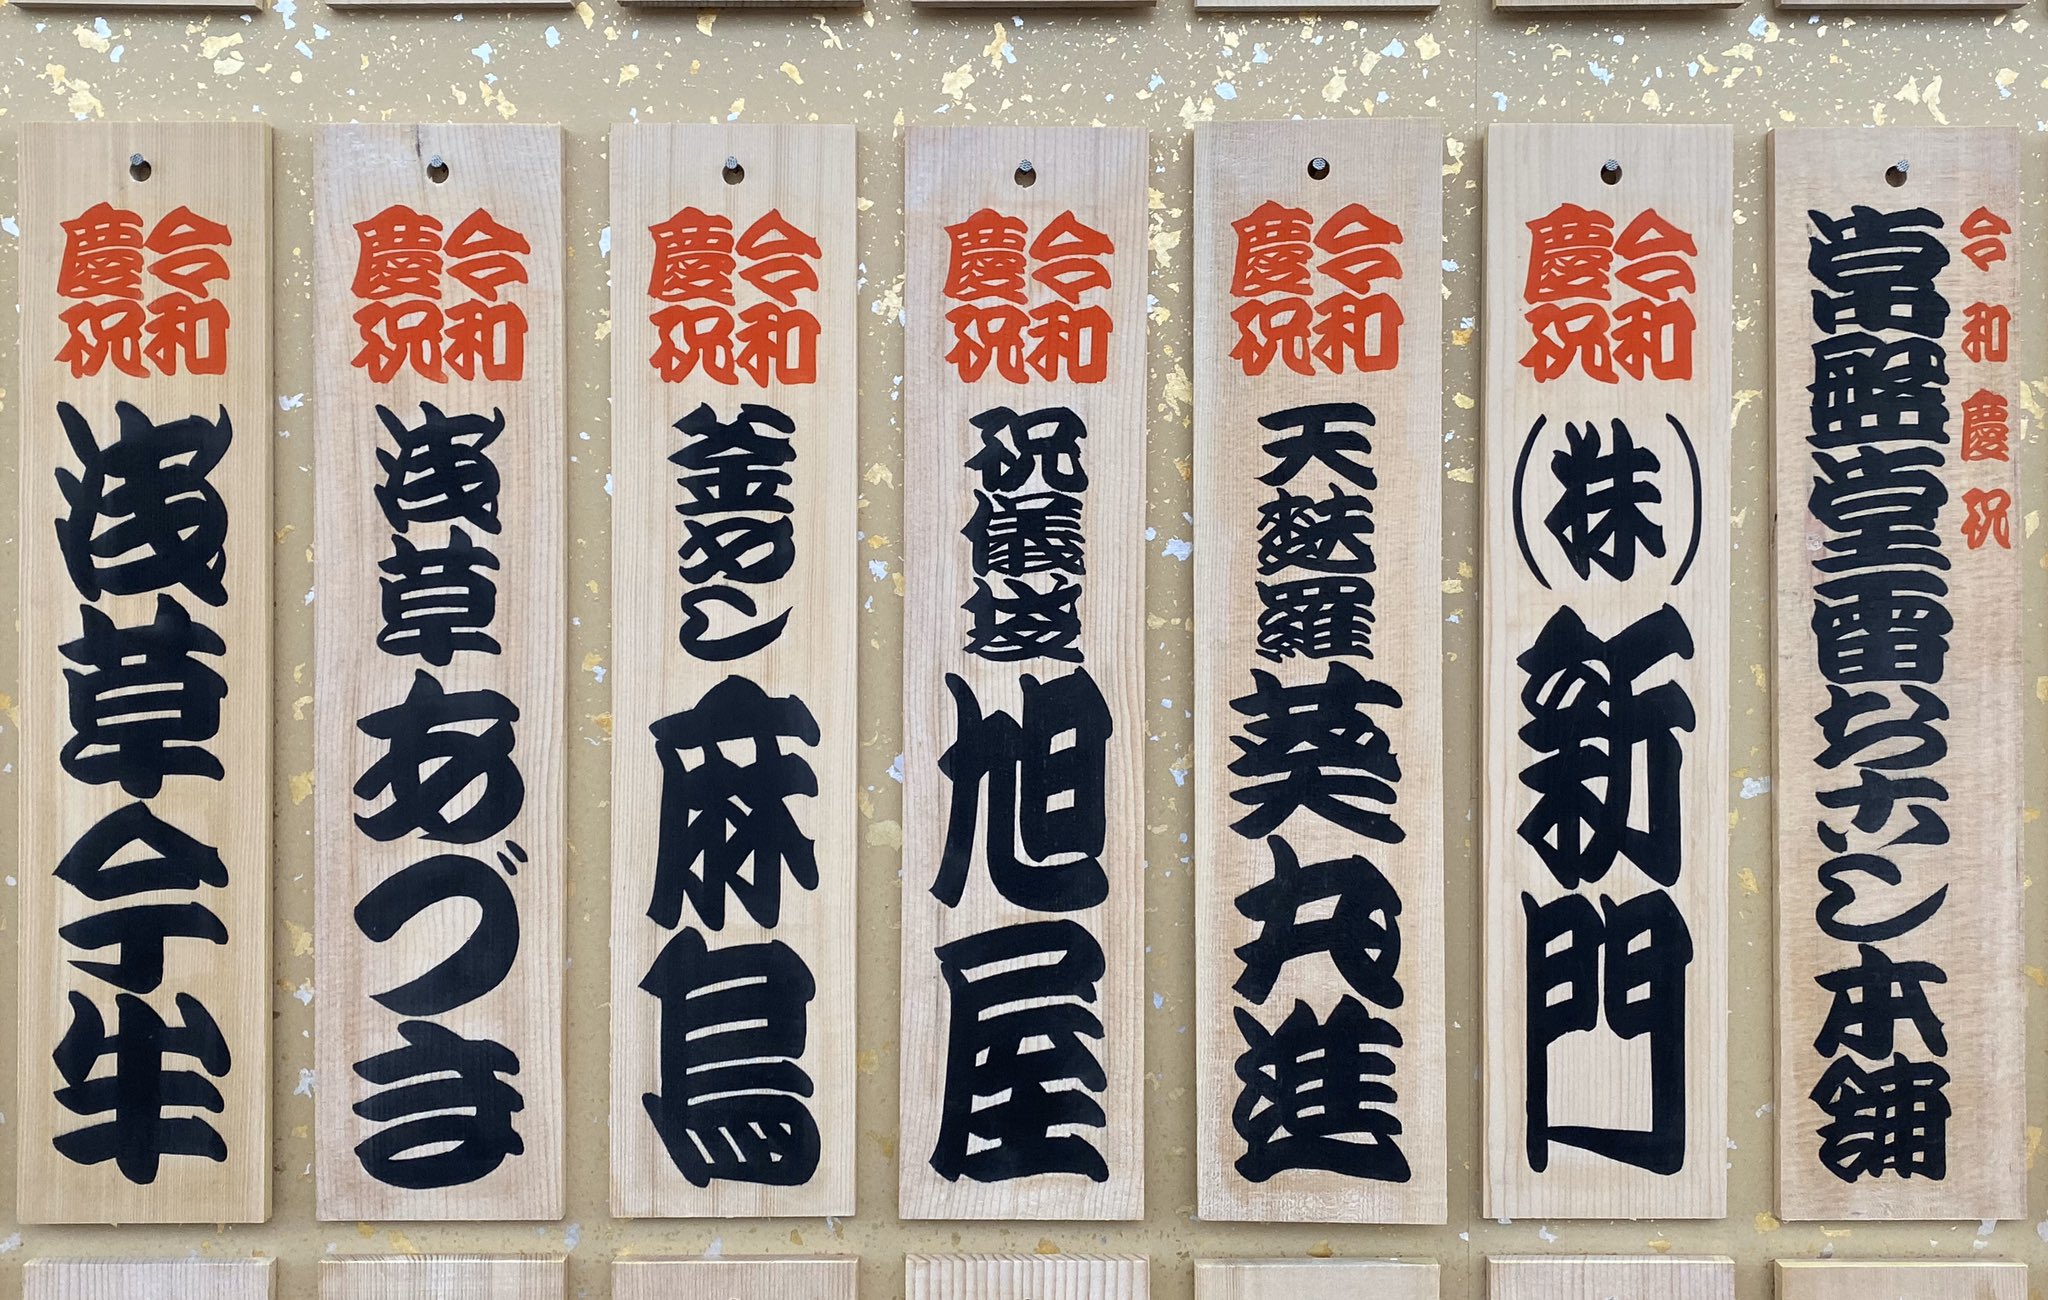 令和慶祝
常盤堂雷おこし本舗
令和
慶祝
(株)新門
令和
慶祝
天麩羅葵丸進
令和
慶祝
祝儀袋旭屋
令和
慶祝
釜めし麻鳥
令和
慶祝
浅草あづま
令和
慶祝
浅草今半